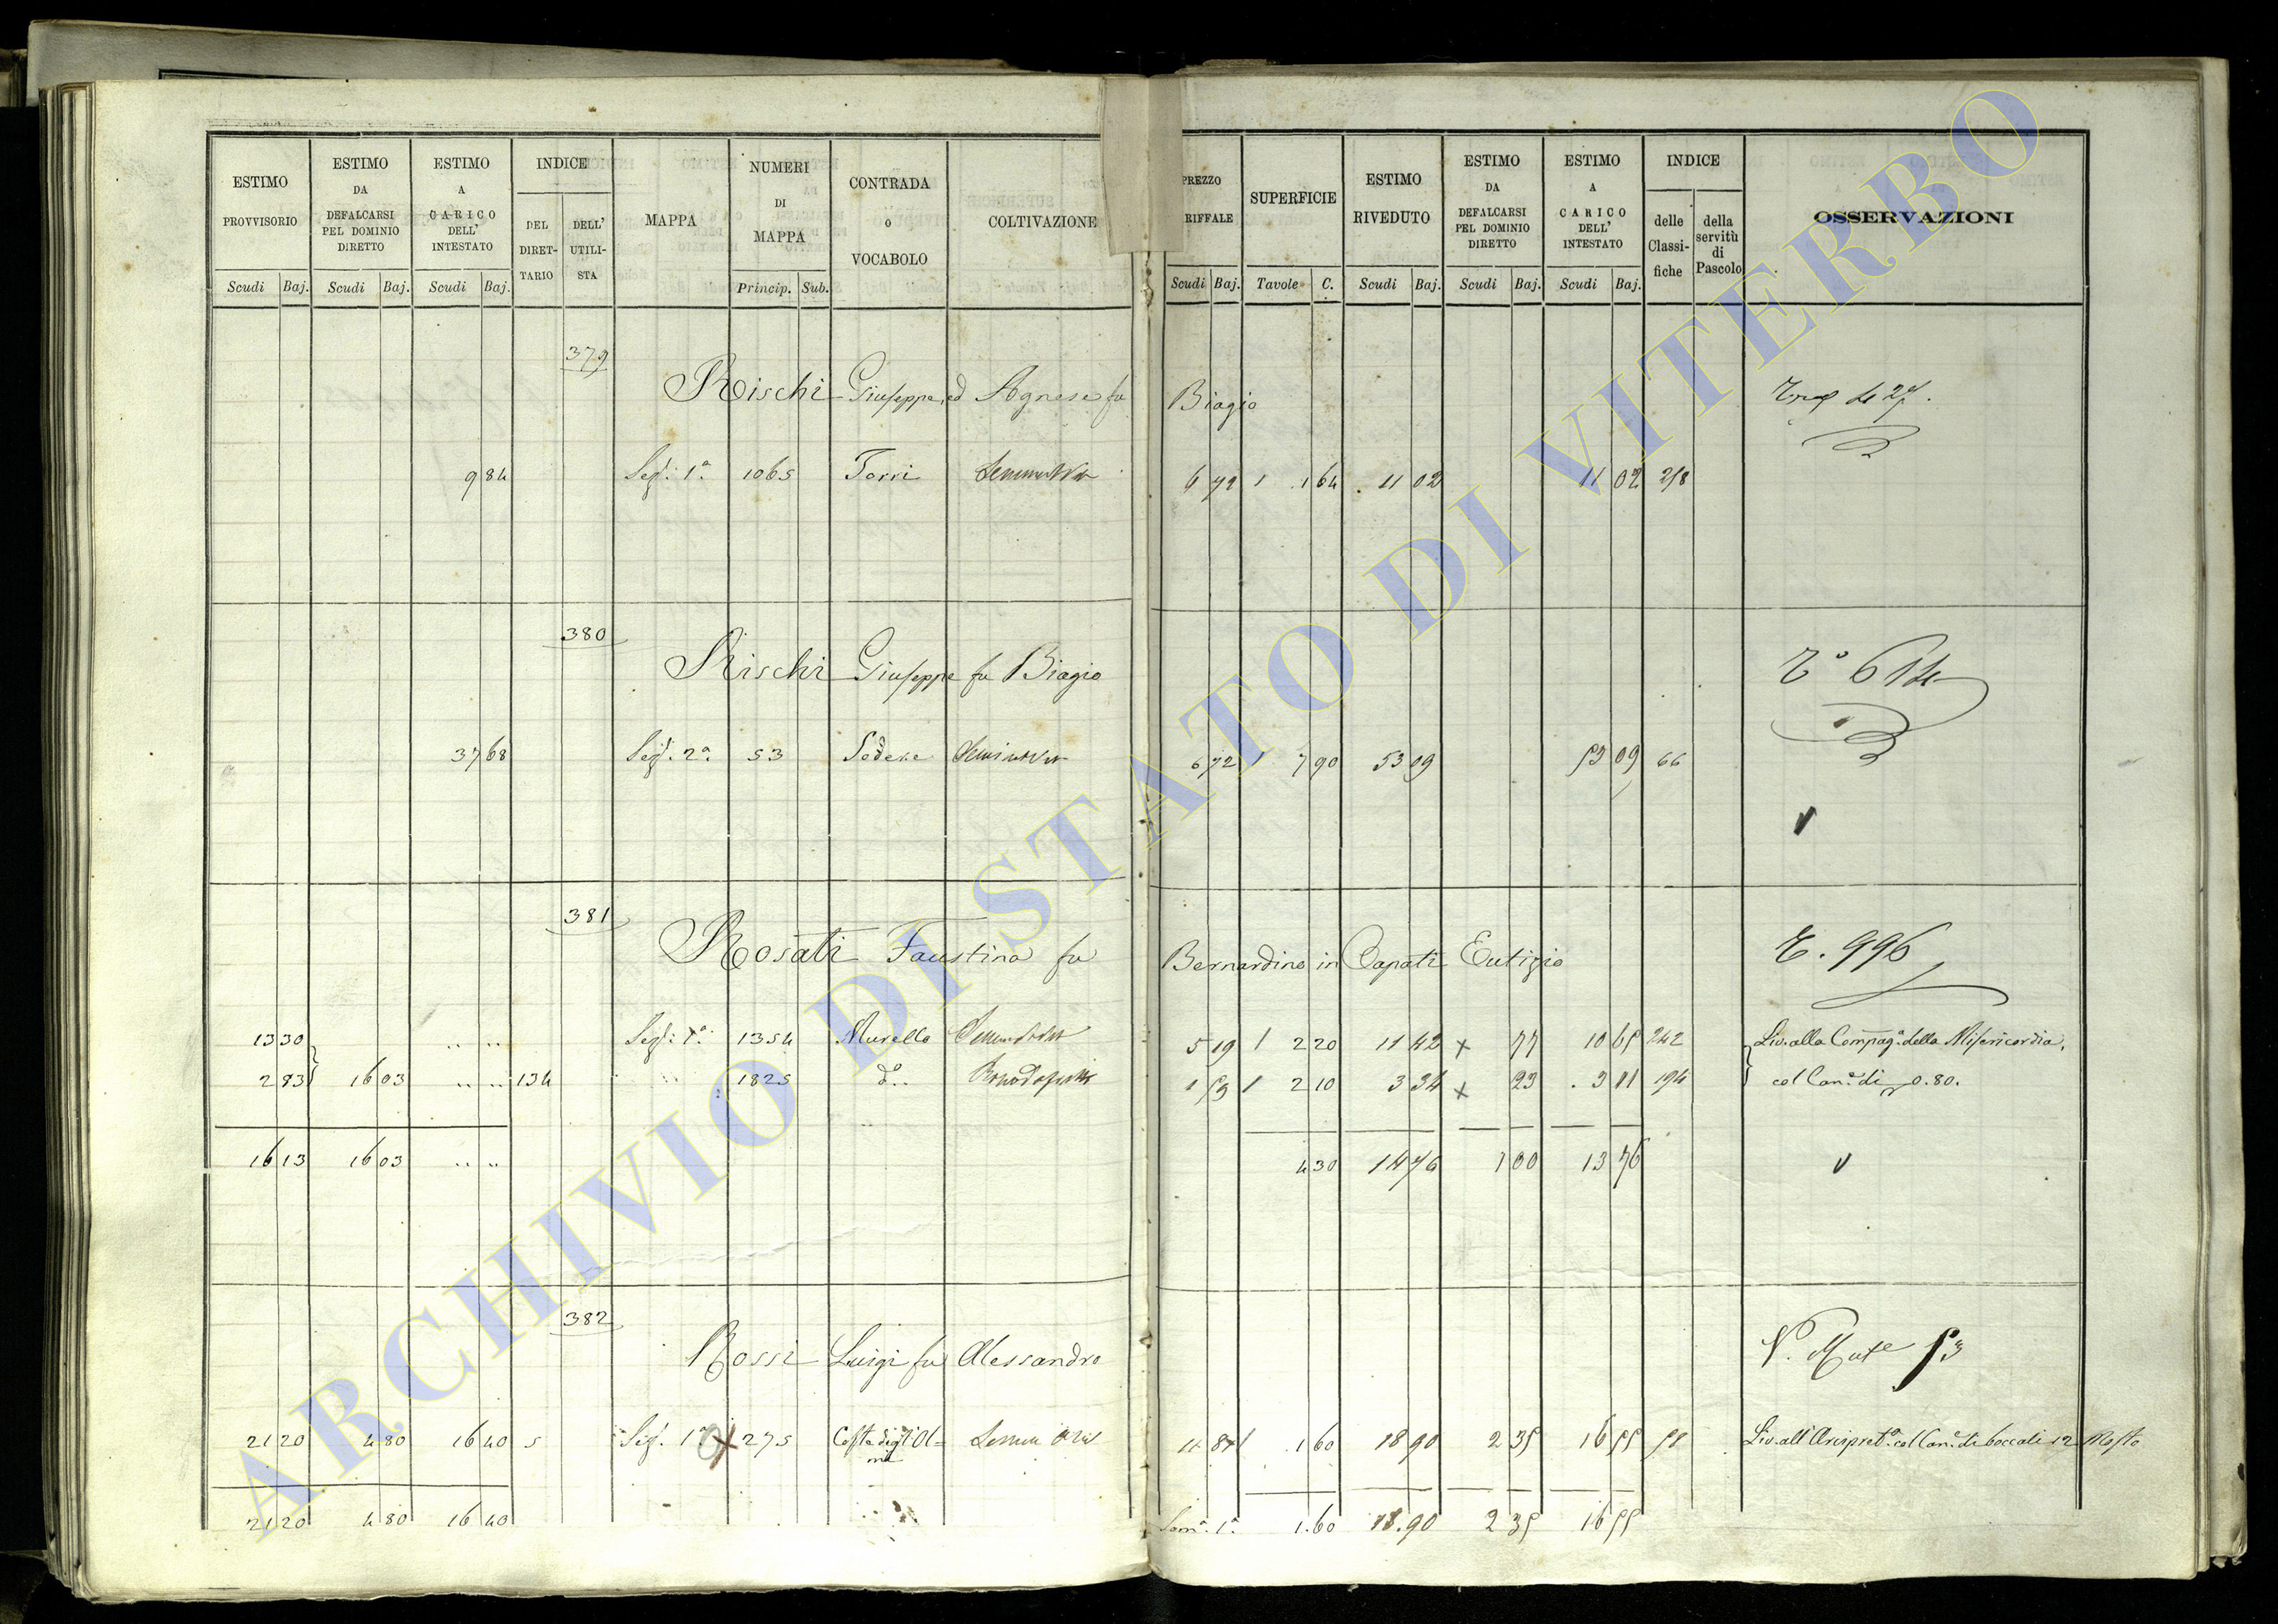 ESTIMO PROVVISORIO Scudi Baj.
ESTIMO DA DEFALCARSI PEL DOMINIO DIRETTO Scudi Baj.
ESTIMO A CARICO DELL' INTESTATO Scudi Baj.
INDICE DEL DIRET-TARIO DELL' UTILI-STA
MAPPA
NUMERI DI MAPPA Princip. Sub.
CONTRADA o VOCABOLO
COLTIVAZIONE
PREZZO RIFFALE Scudi Baj.
SUPERFICIE Tavole C.
ESTIMO RIVEDUTO Scudi Baj.
ESTIMO DA DEFALCARSI PEL DOMINIO DIRETTO Scudi Baj.
ESTIMO A CARICO DELL' INTESTATO Scudi Baj.
INDICE delle Classi-fiche della servitù di Pascolo
OSSERVAZIONI
379
Rischi Giuseppe, ed Agnese fu Biagio
9 84 Sez: 1ª 1065 Torri 6 72 1 1 64 11 02 11 02 218
380
Rischi Giuseppe fu Biagio
37 68 Sez: 2ª 53 6 72 1 7 90 53 09 53 09 66
381
Rosati Faustina fu Bernardino in Capati Eutizio
T. 996
13 30 Sez: 1ª 1354 Murella 5 19 1 2 20 11 42 x 77 10 65 242 Liv. alla Compagª della Misericordia,
2 83 16 03 134 1825 dº 1 59 1 2 10 3 34 x 23 3 11 194 col Canº di 0.80.
16 13 16 03 4 30 14 76 1 00 13 76
382
Rossi Luigi fu Alessandro
21 20 4 80 16 40 5 Sez. 1ª 275 11 81 1 1 60 18 90 2 35 16 55 51 Liv. all' Arcipretª col Canº di boccali 12 Mosto
21 20 4 80 16 40 Somª 1ª 1.60 18.90 2 35 16 55
ARCHIVIO DI STATO DI VITERBO